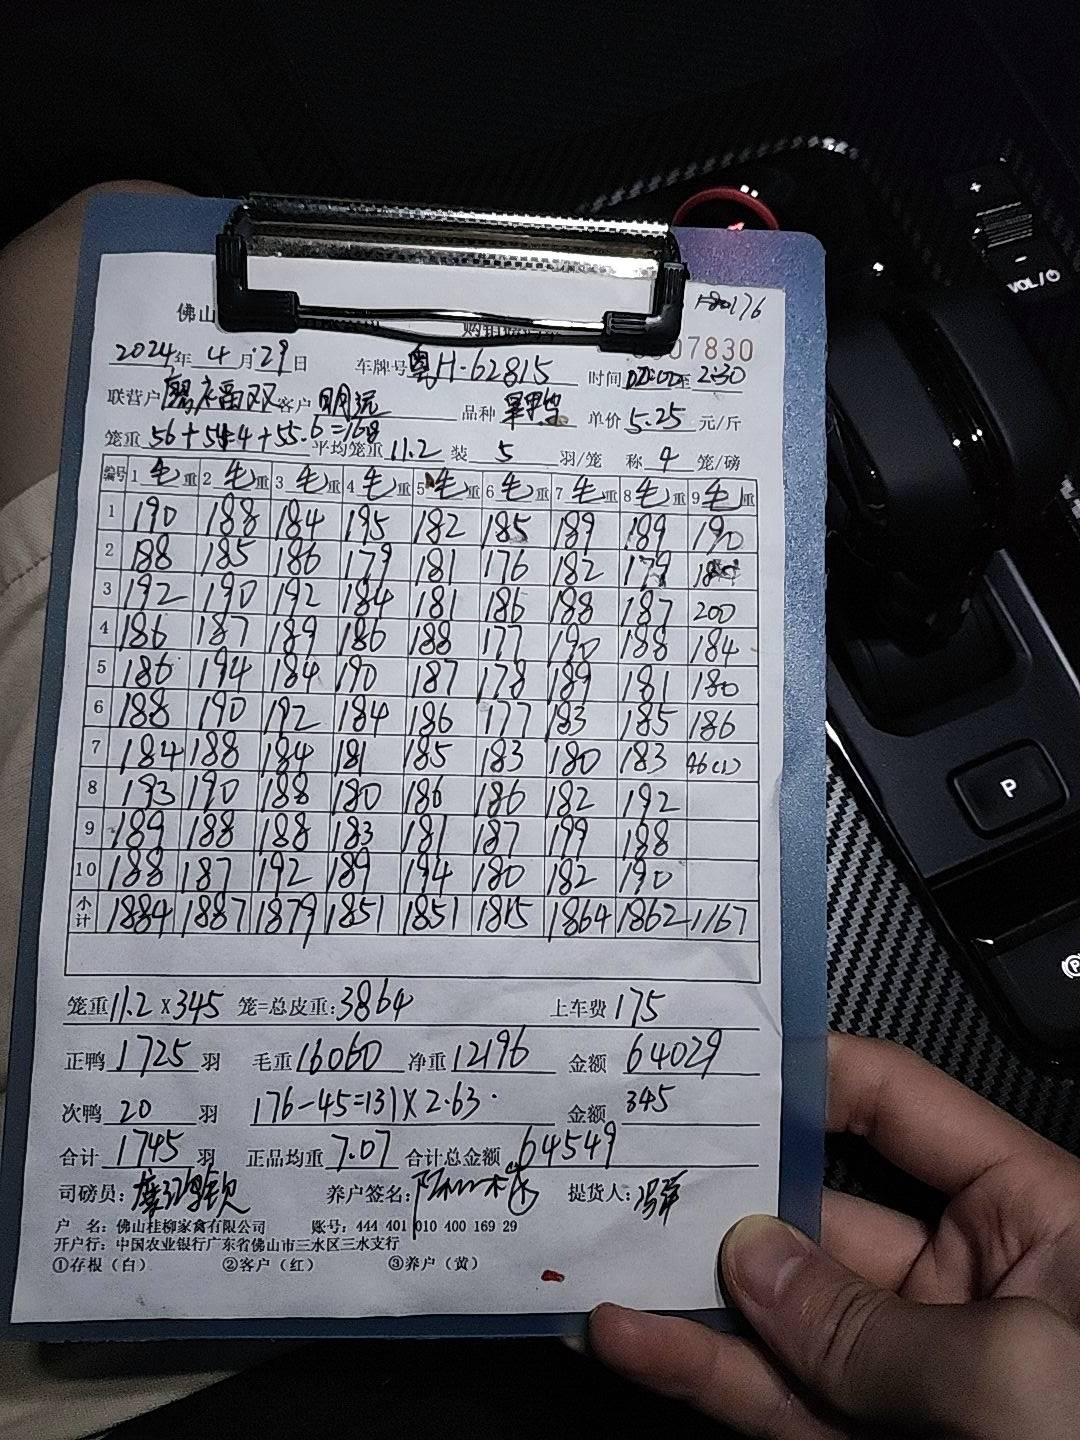 176
佛山
07830
2024年 4月29日 车牌号 粤H·62815 时间 至 2:30
联营户 福双 客户 明远 品种 单价 5.25 元/斤
笼重 56+54.4+55.6=168 平均笼重 11.2 装 5 羽/笼 称 4 笼/磅
编号 1 毛重 2 毛重 3 毛重 4 毛重 5 毛重 6 毛重 7 毛重 8 毛重 9 毛重
1 190 188 184 195 182 185 189 189 190
2 188 185 186 179 181 176 182 179
3 192 190 192 184 181 186 188 187 200
4 186 187 189 186 188 177 190 188 184
5 186 194 184 190 187 178 189 181 180
6 188 190 192 184 186 177 183 185 186
7 184 188 184 181 185 183 180 183 46(1)
8 193 190 188 180 186 186 182 192
9 189 188 188 183 181 187 199 188
10 188 187 192 189 194 180 182 190
小计 1884 1887 1879 1851 1851 1815 1864 1862 1167
笼重 11.2 X 345 笼=总皮重: 3864 上车费 175
正鸭 1725 羽 毛重 16060 净重 12196 金额 64029
次鸭 20 羽 176-45=131X2.63 金额 345
合计 1745 羽 正品均重 7.07 合计总金额 64549
司磅员: 养户签名: 提货人:
户 名: 佛山桂柳家禽有限公司 账号: 444 401 010 400 169 29
开户行: 中国农业银行广东省佛山市三水区三水支行
①存根(白) ②客户(红) ③养户(黄)
VOL/
P